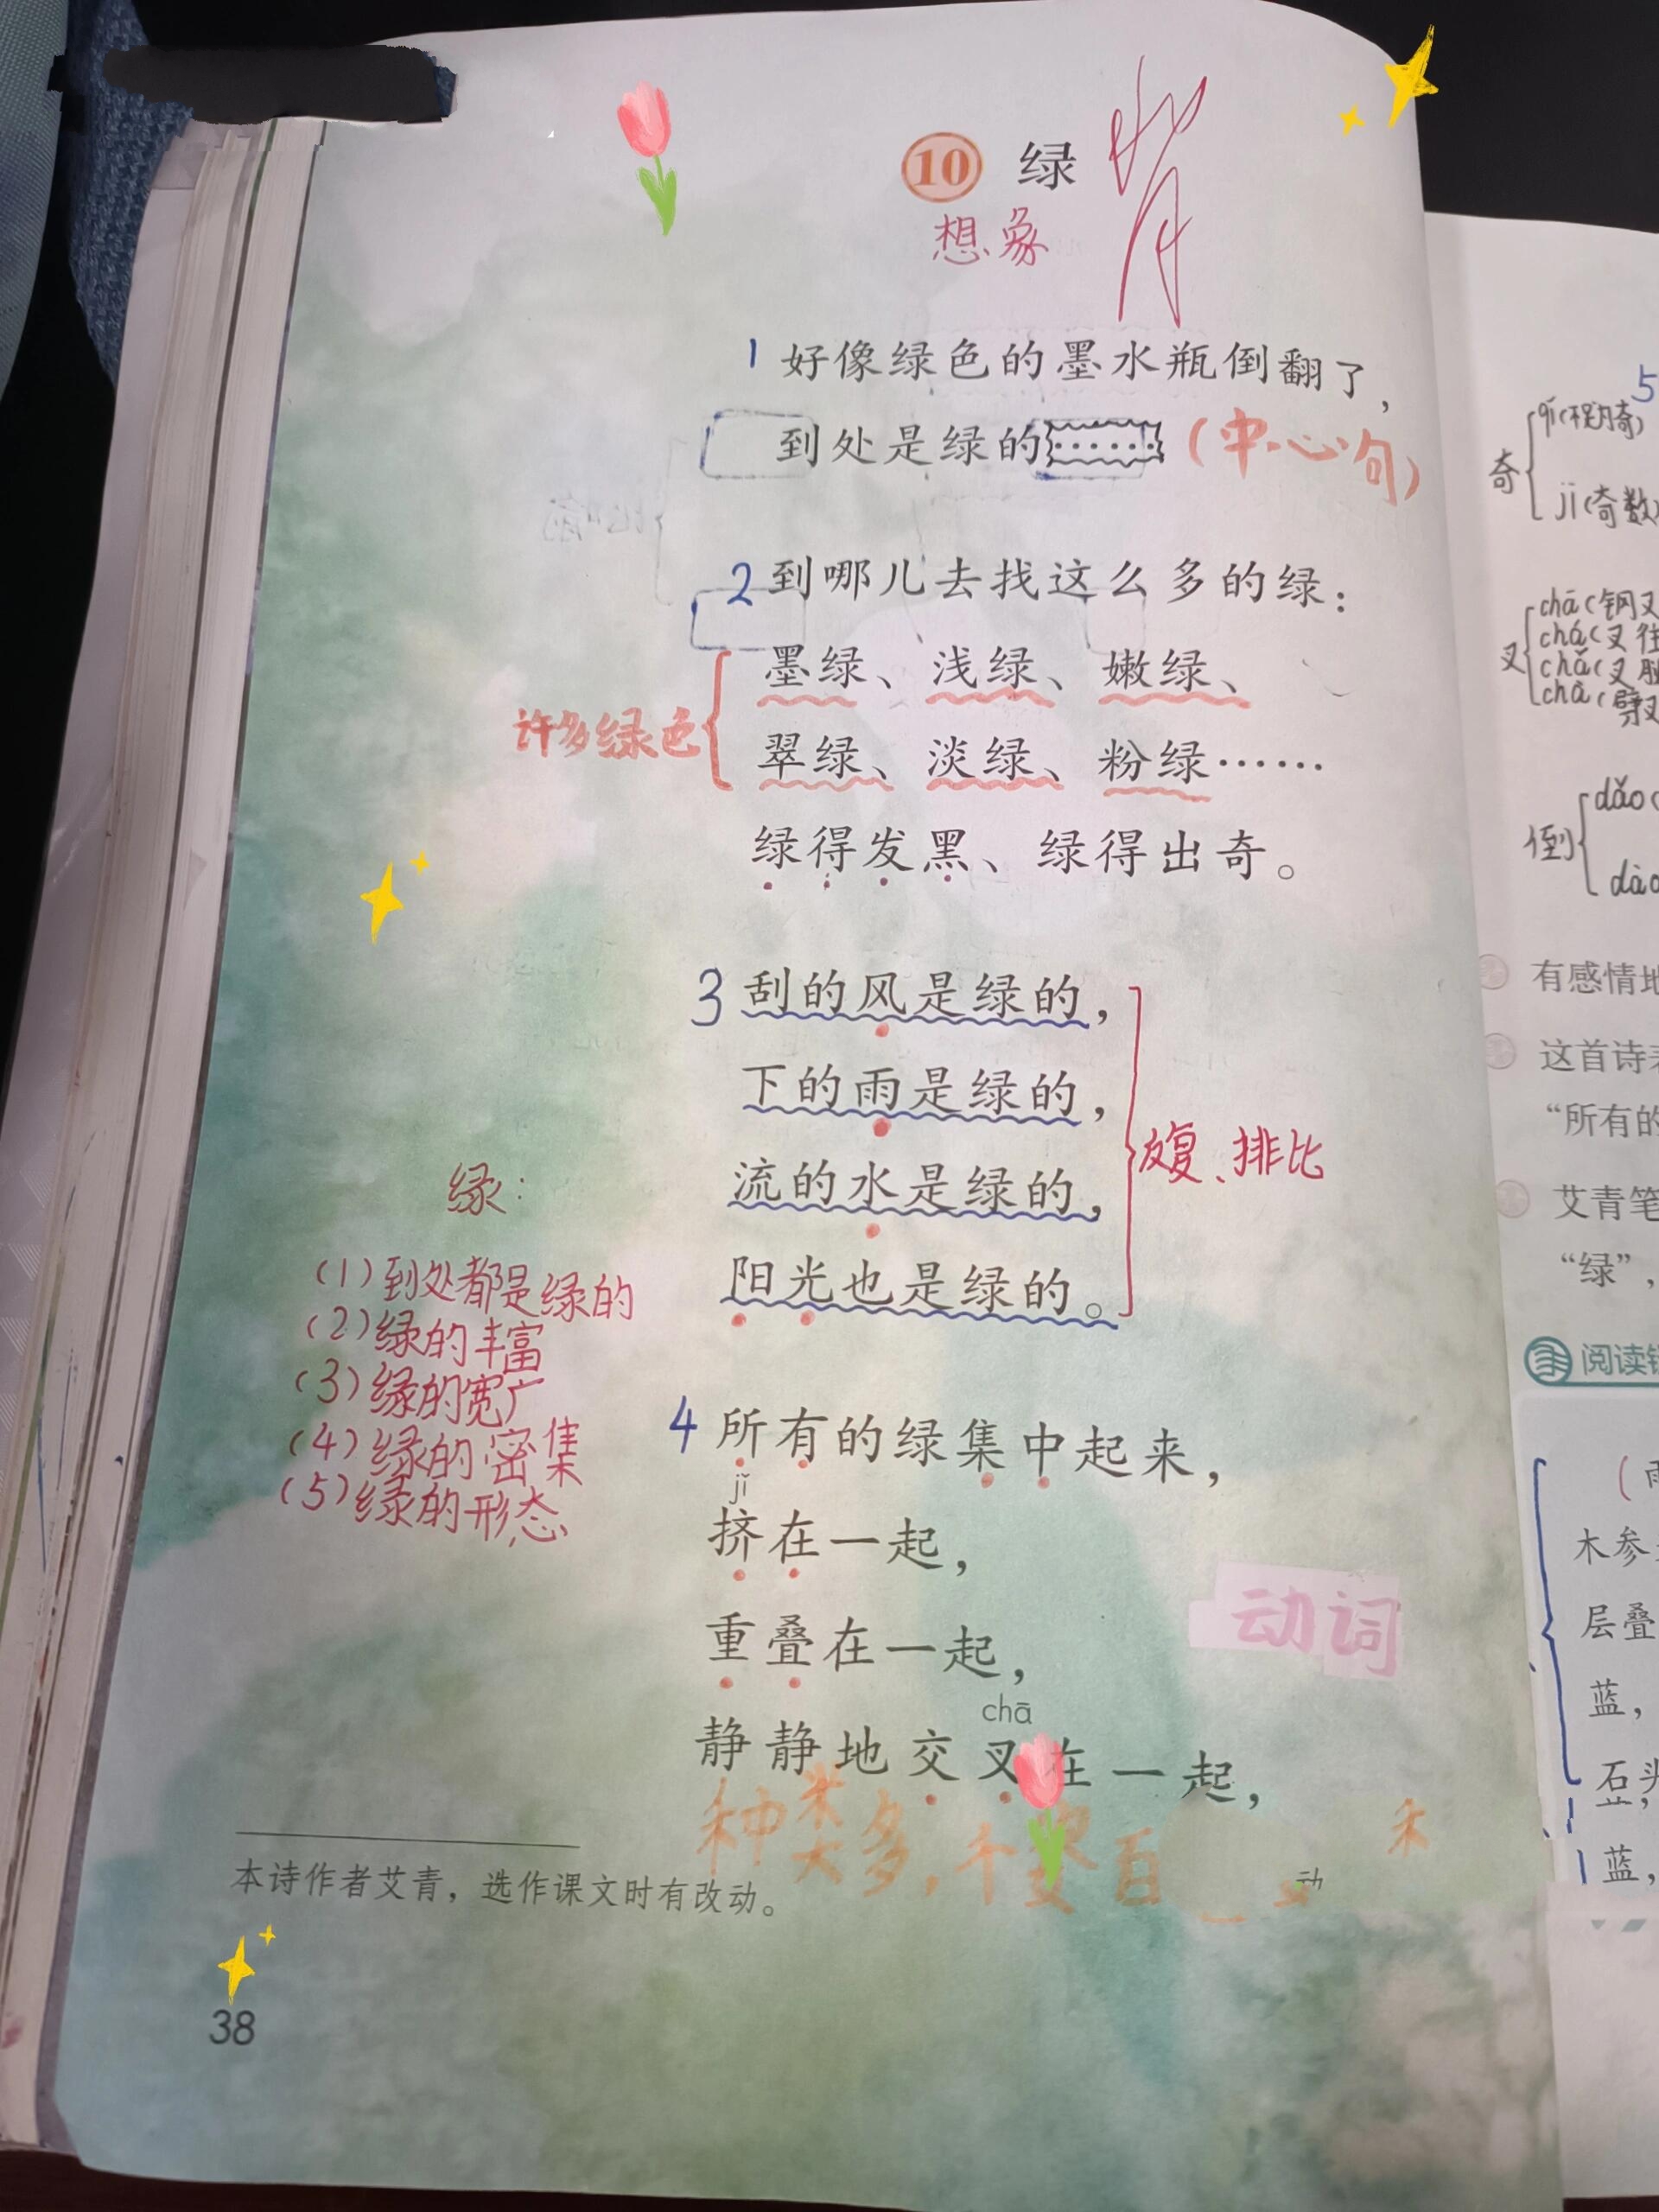 10 绿 背
想象
1 好像绿色的墨水瓶倒翻了，
到处是绿的…… (中心句)
2 到哪儿去找这么多的绿：
墨绿、浅绿、嫩绿、
许多绿色
翠绿、淡绿、粉绿……
绿得发黑、绿得出奇。
3 刮的风是绿的，
下的雨是绿的，
流的水是绿的，
反复、排比
阳光也是绿的。
绿：
(1)到处都是绿的
(2)绿的丰富
(3)绿的宽广
(4)绿的密集
(5)绿的形态
4 所有的绿集中起来，
jǐ
挤在一起，
动词
重叠在一起，
chā
静静地交叉在一起，
种类多，
本诗作者艾青，选作课文时有改动。
38
5
奇
qí(
jī(奇数)
叉
chā(
chá(叉
chǎ(叉
chà(劈叉
倒
dǎo(
dào
有感情地
这首诗
“所有的
艾青笔
“绿”，
阅读链
木参
层叠
蓝，
石头
蓝，